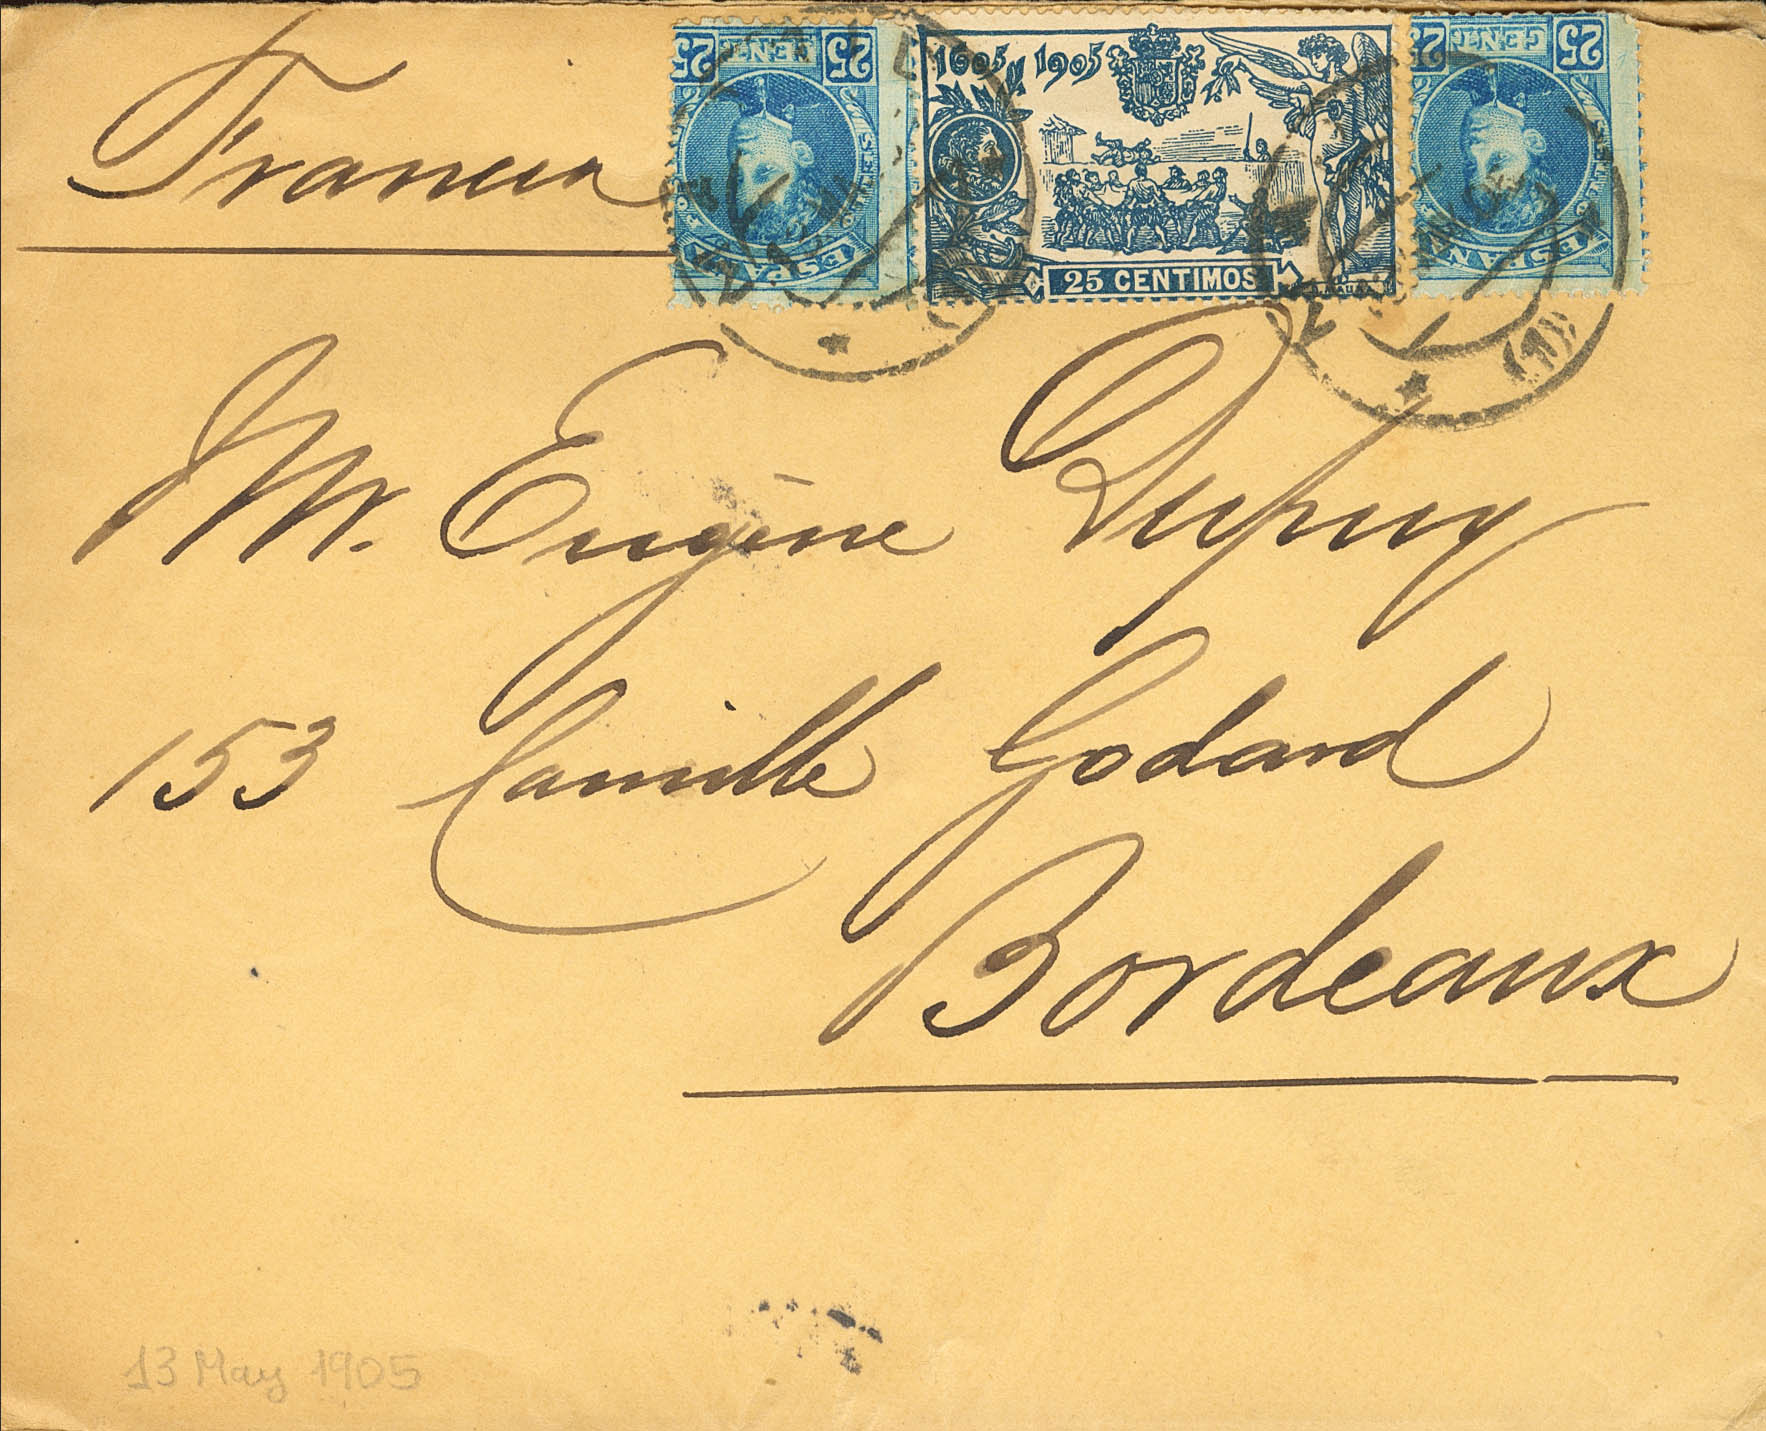 Francia
25 CENT 25
ESPAÑA
1605 1905
25 CENTIMOS
25 CENT 25
ESPAÑA
(18)
Mr. Eugène Dupuy
153 Camille Godard
Bordeaux
13 May 1905